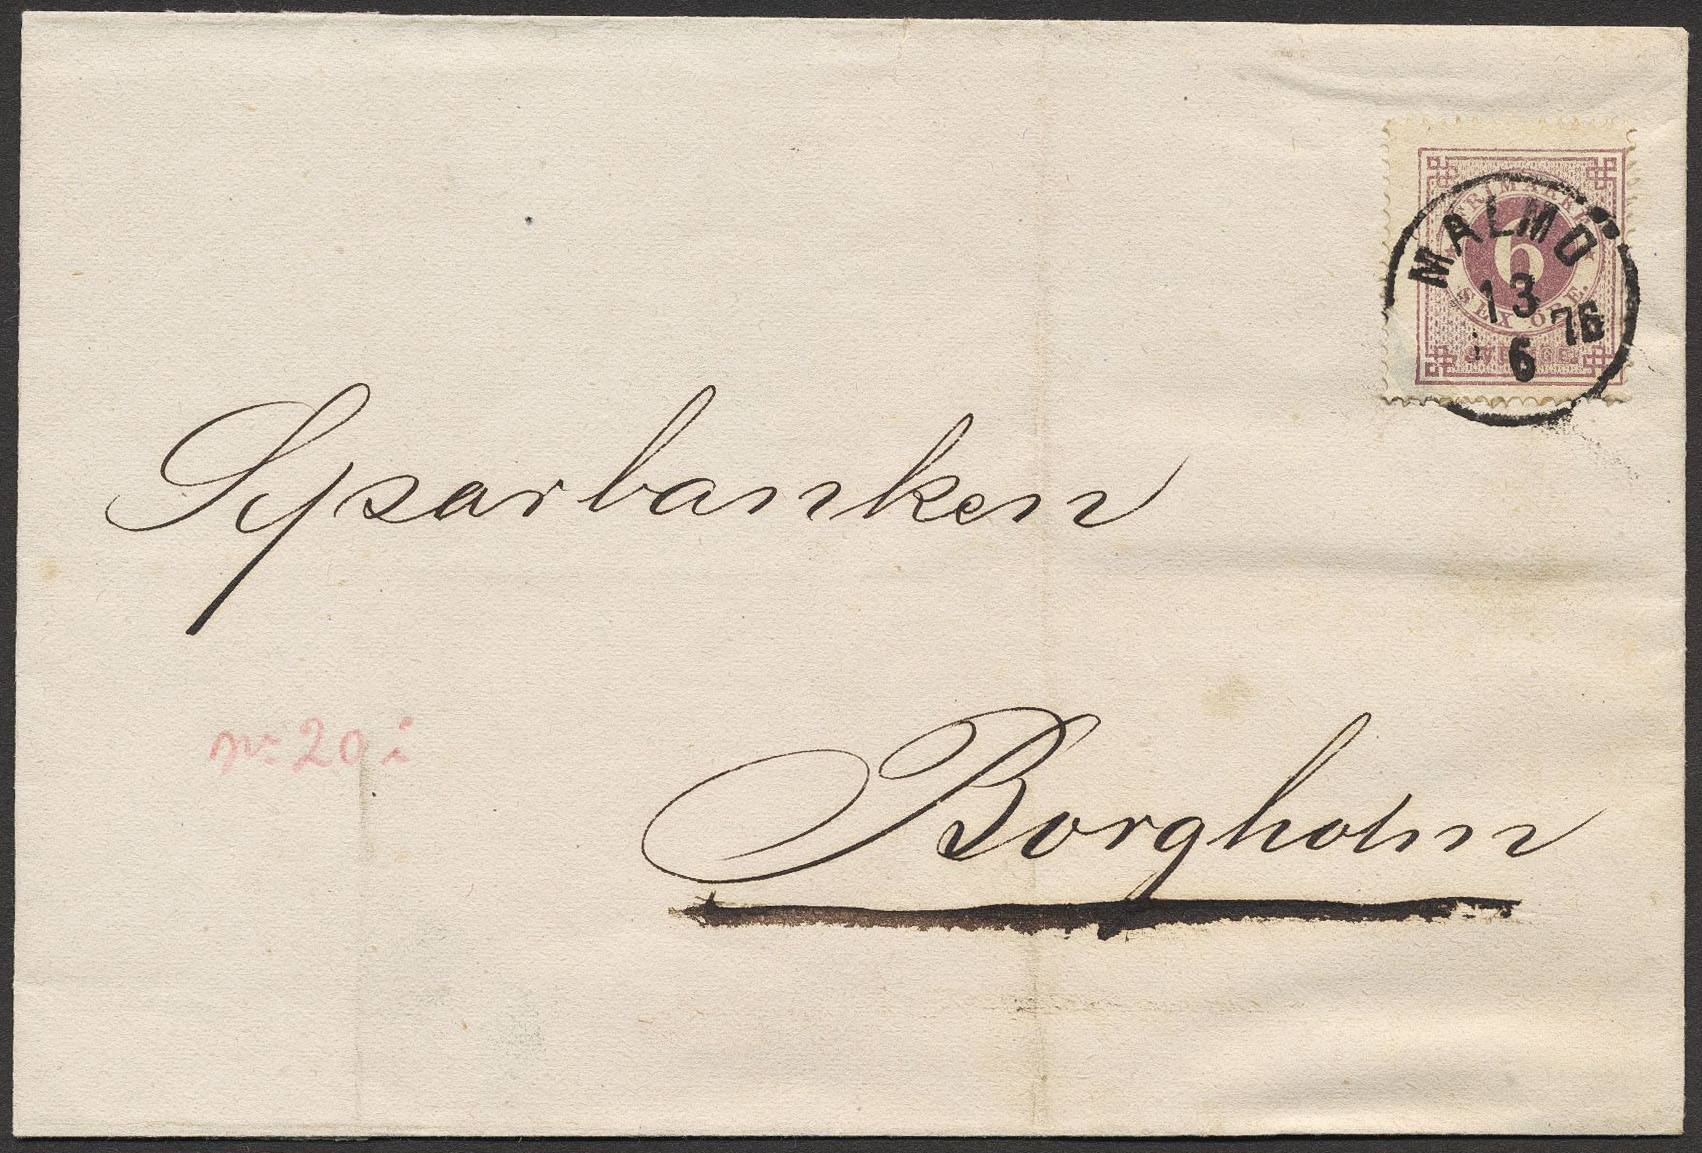 FRIMÄRKE
6
SEX ÖRE.
SVERIGE.
MALMÖ
13
6
76
Sparbanken
nr 20 i
Borgholm